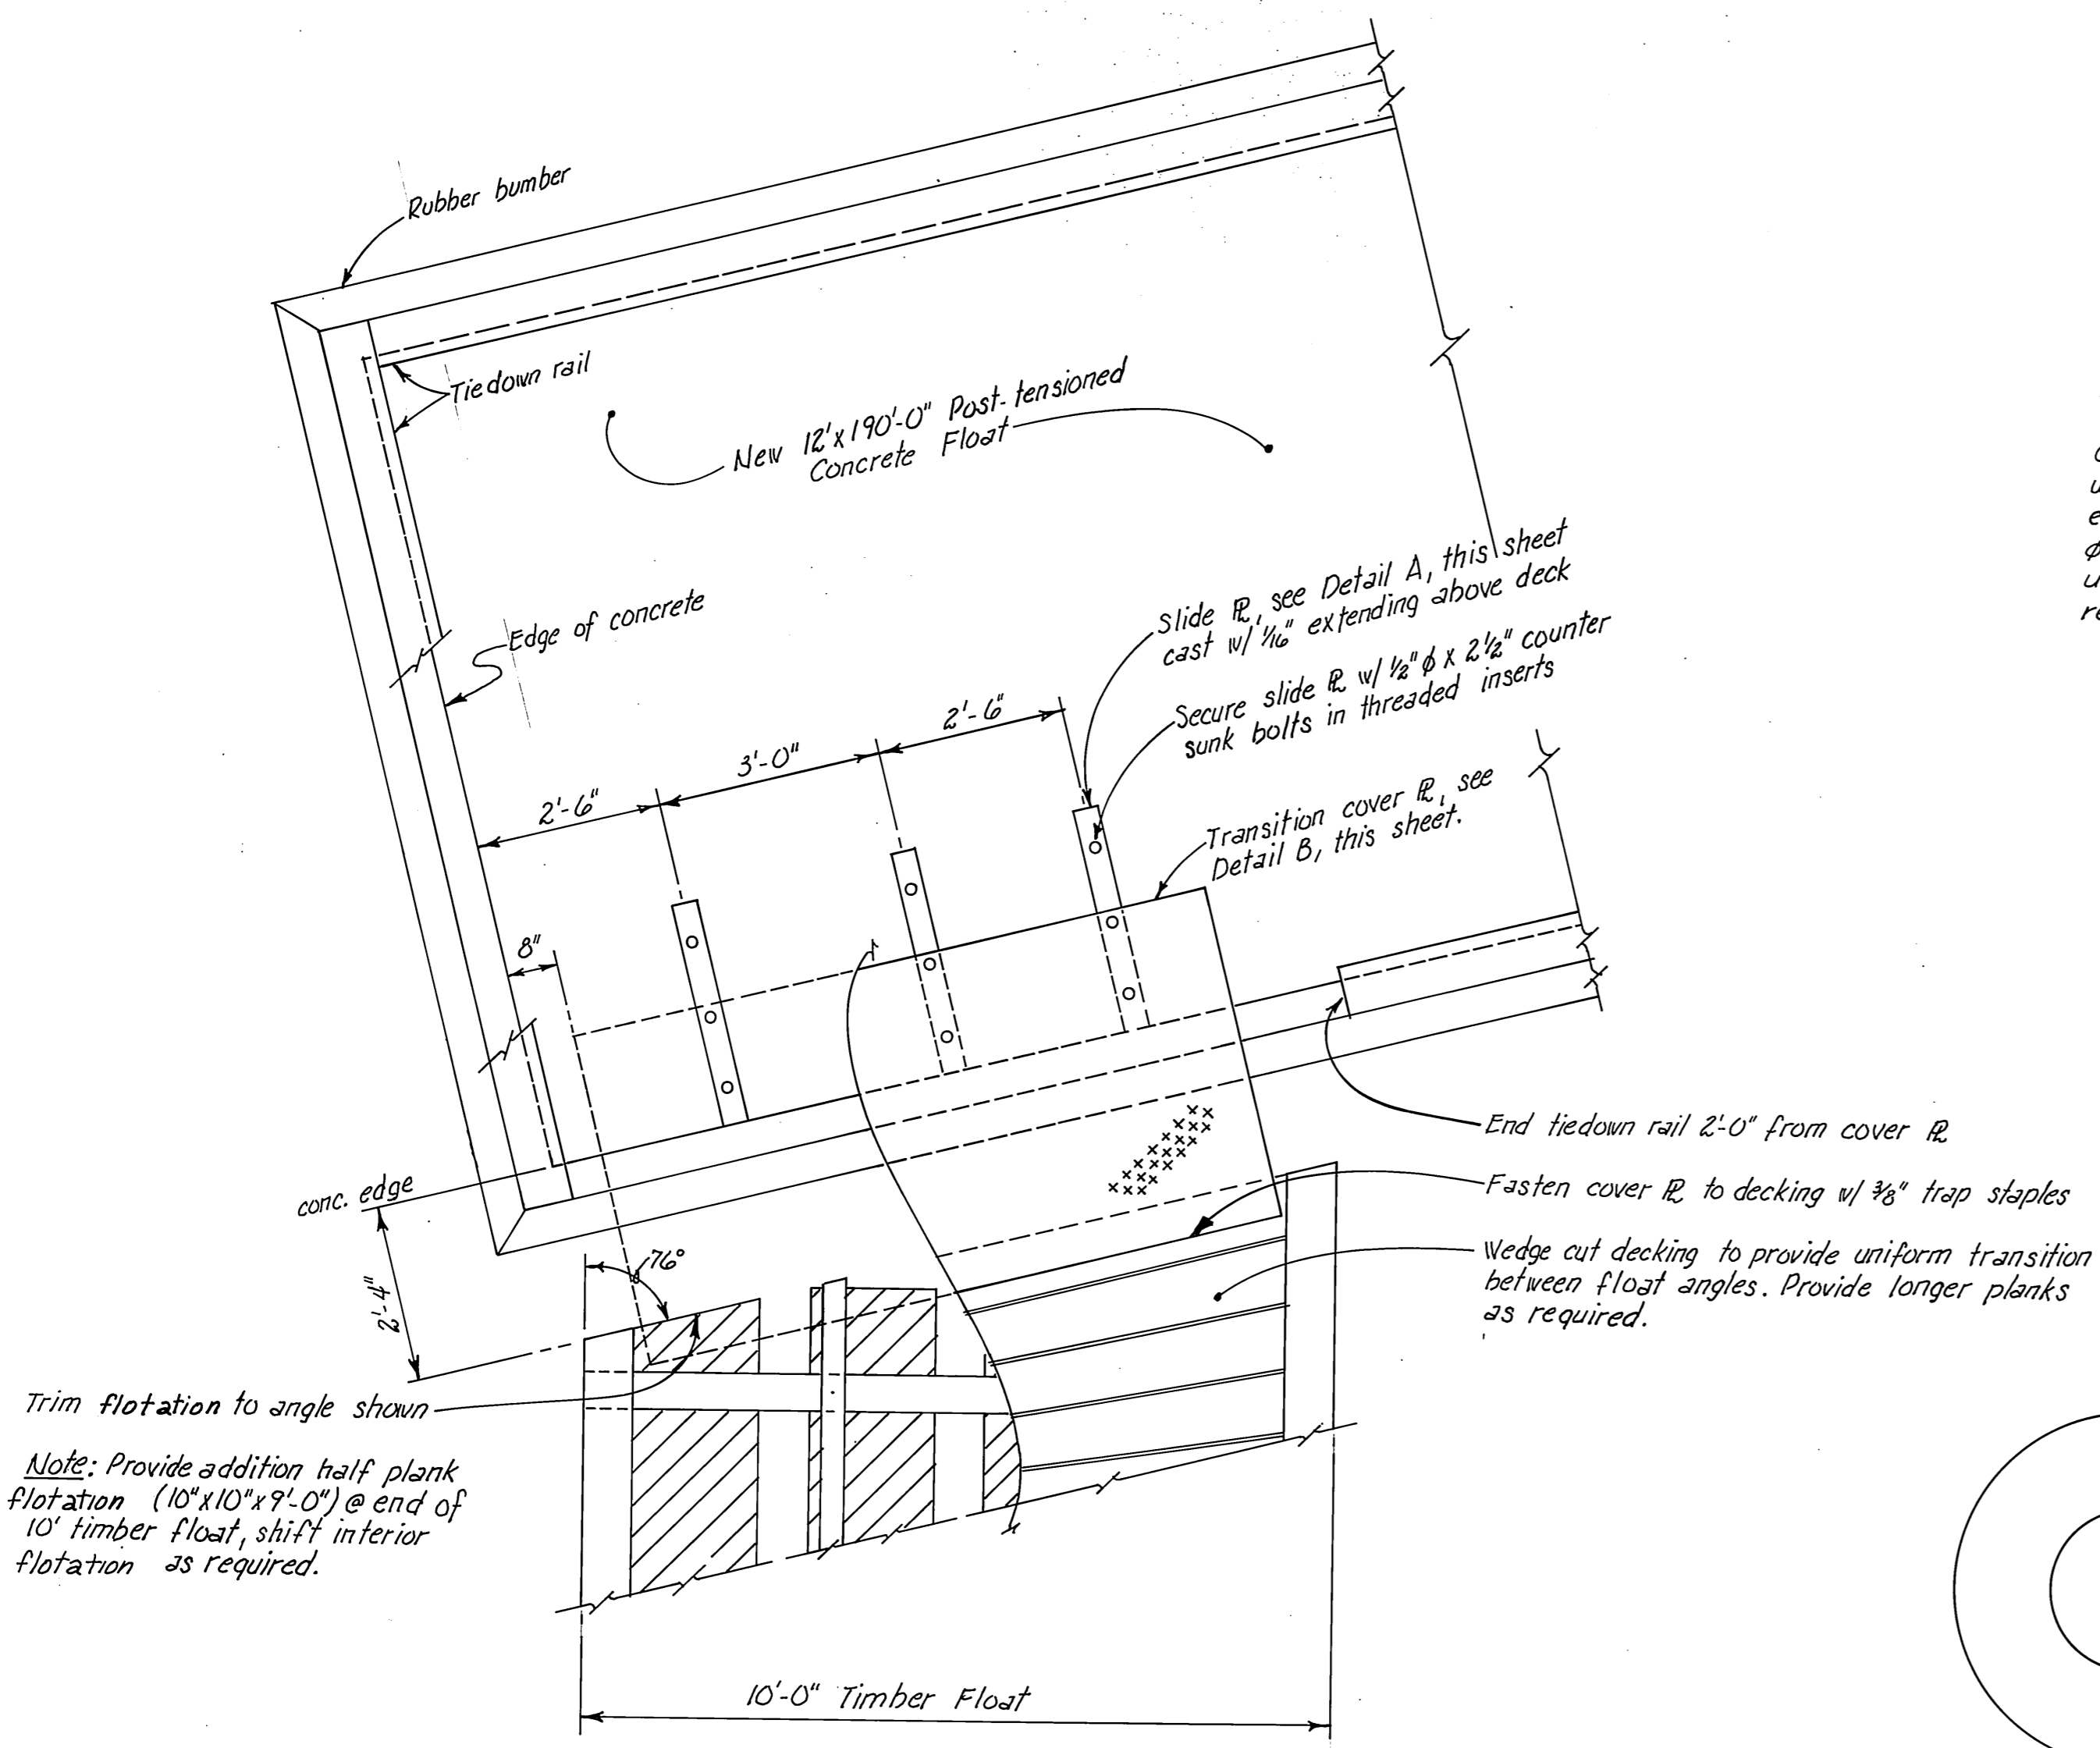 Rubber bumber
Tiedown rail
New 12'x190'-0" Post-tensioned
Concrete Float
Edge of concrete
Slide ⅊, see Detail A, this sheet
cast w/ 1/16" extending above deck
Secure slide ⅊ w/ 1/2"ϕ x 2 1/2" counter
sunk bolts in threaded inserts
Transition cover ⅊, see
Detail B, this sheet.
2'-6"
3'-0"
2'-6"
8"
End tiedown rail 2'-0" from cover ⅊
Fasten cover ⅊ to decking w/ 3/8" trap staples
Wedge cut decking to provide uniform transition
between float angles. Provide longer planks
as required.
conc. edge
2'-4"
76°
Trim flotation to angle shown
Note: Provide addition half plank
flotation (10"x10"x9'-0") @ end of
10' timber float, shift interior
flotation as required.
10'-0" Timber Float